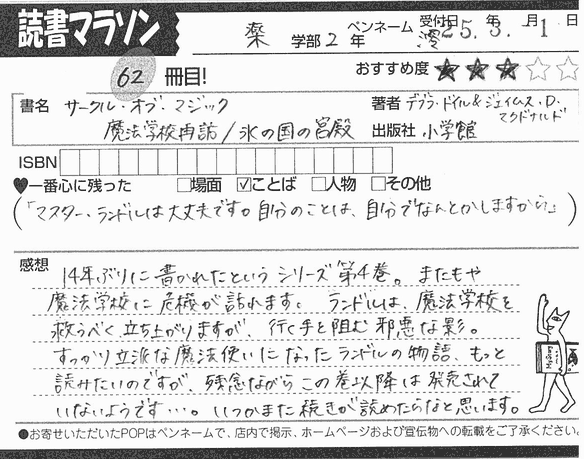 読書マラソン
薬 学部 2 年 ペンネーム 澪 受付日 25年 3月 1日
62 冊目!
おすすめ度 ★★★☆☆
書名 サークル・オブ・マジック 著者 デブラ・ドイル&ジェイムズ・D・マクドナルド
魔法学校再訪/氷の国の宮殿 出版社 小学館
ISBN
♥一番心に残った □場面 ☑ことば □人物 □その他
(「マスター、ランドルは大丈夫です。自分のことは、自分でなんとかしますから。」)
感想
14年ぶりに書かれたというシリーズ第4巻。またもや
魔法学校に危機が訪れます。ランドルは、魔法学校を
救うべく立ち上がりますが、行く手を阻む邪悪な影。
すっかり立派な魔法使いになったランドルの物語、もっと
読みたいのですが、残念ながらこの巻以降は発売されて
いないようです…。いつかまた続きが読めたらなと思います。
●お寄せいただいたPOPはペンネームで、店内で掲示、ホームページおよび宣伝物への転載をご了承ください。